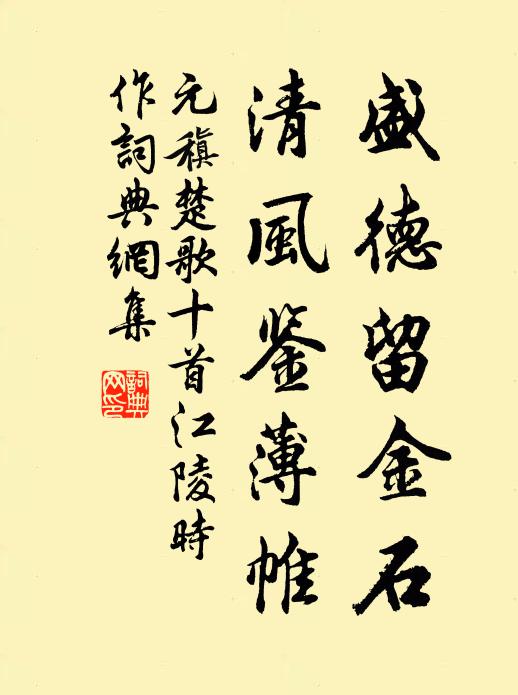 盛德留金石
清風鉴薄帷
元稹楚歌十首江陵時
作詞典網集
詞典
网印